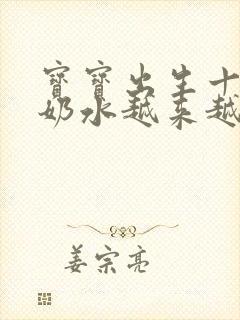 寶寶出生十
奶水越來越
姜宗亮